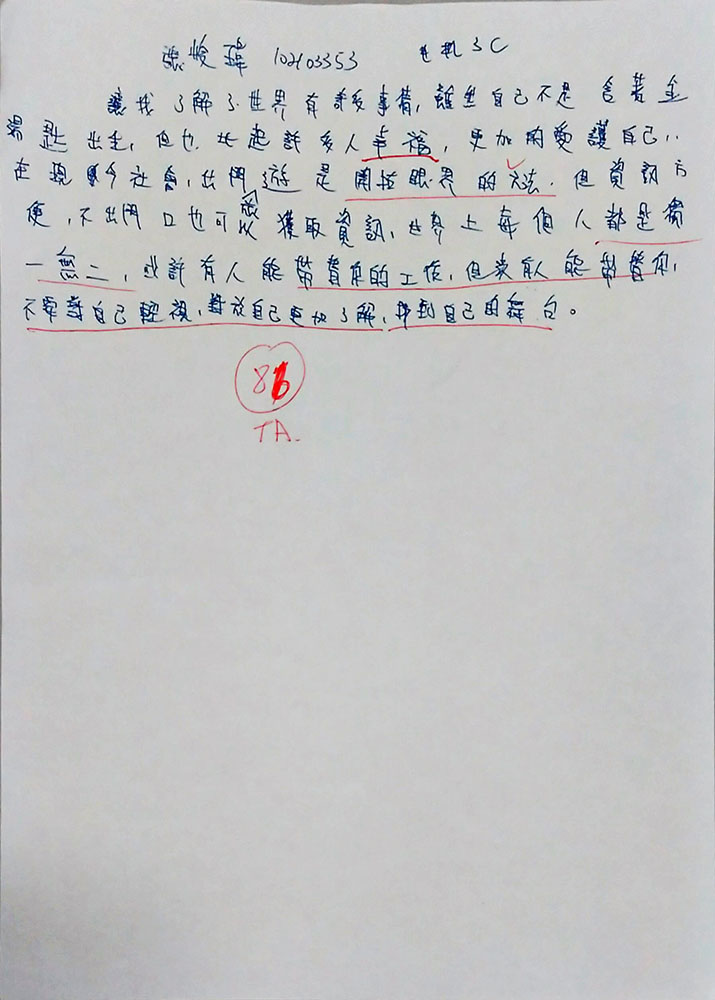 張峻瑋 102103353 电机3C
讓我了解了世界有許多事情,雖然自己不是含著金
湯匙出生,但也比起許多人幸福,更加的愛護自己,
在現今社會,出門遊是開拓眼界的方法.但資訊方
便,不出門口也可以獲取資訊,世界上每個人都是獨
一無二,或許有人能帶資本的工作,但沒有人能
不要對自己輕視,對於自己更加了解,找到自己的舞台。
86
TA.